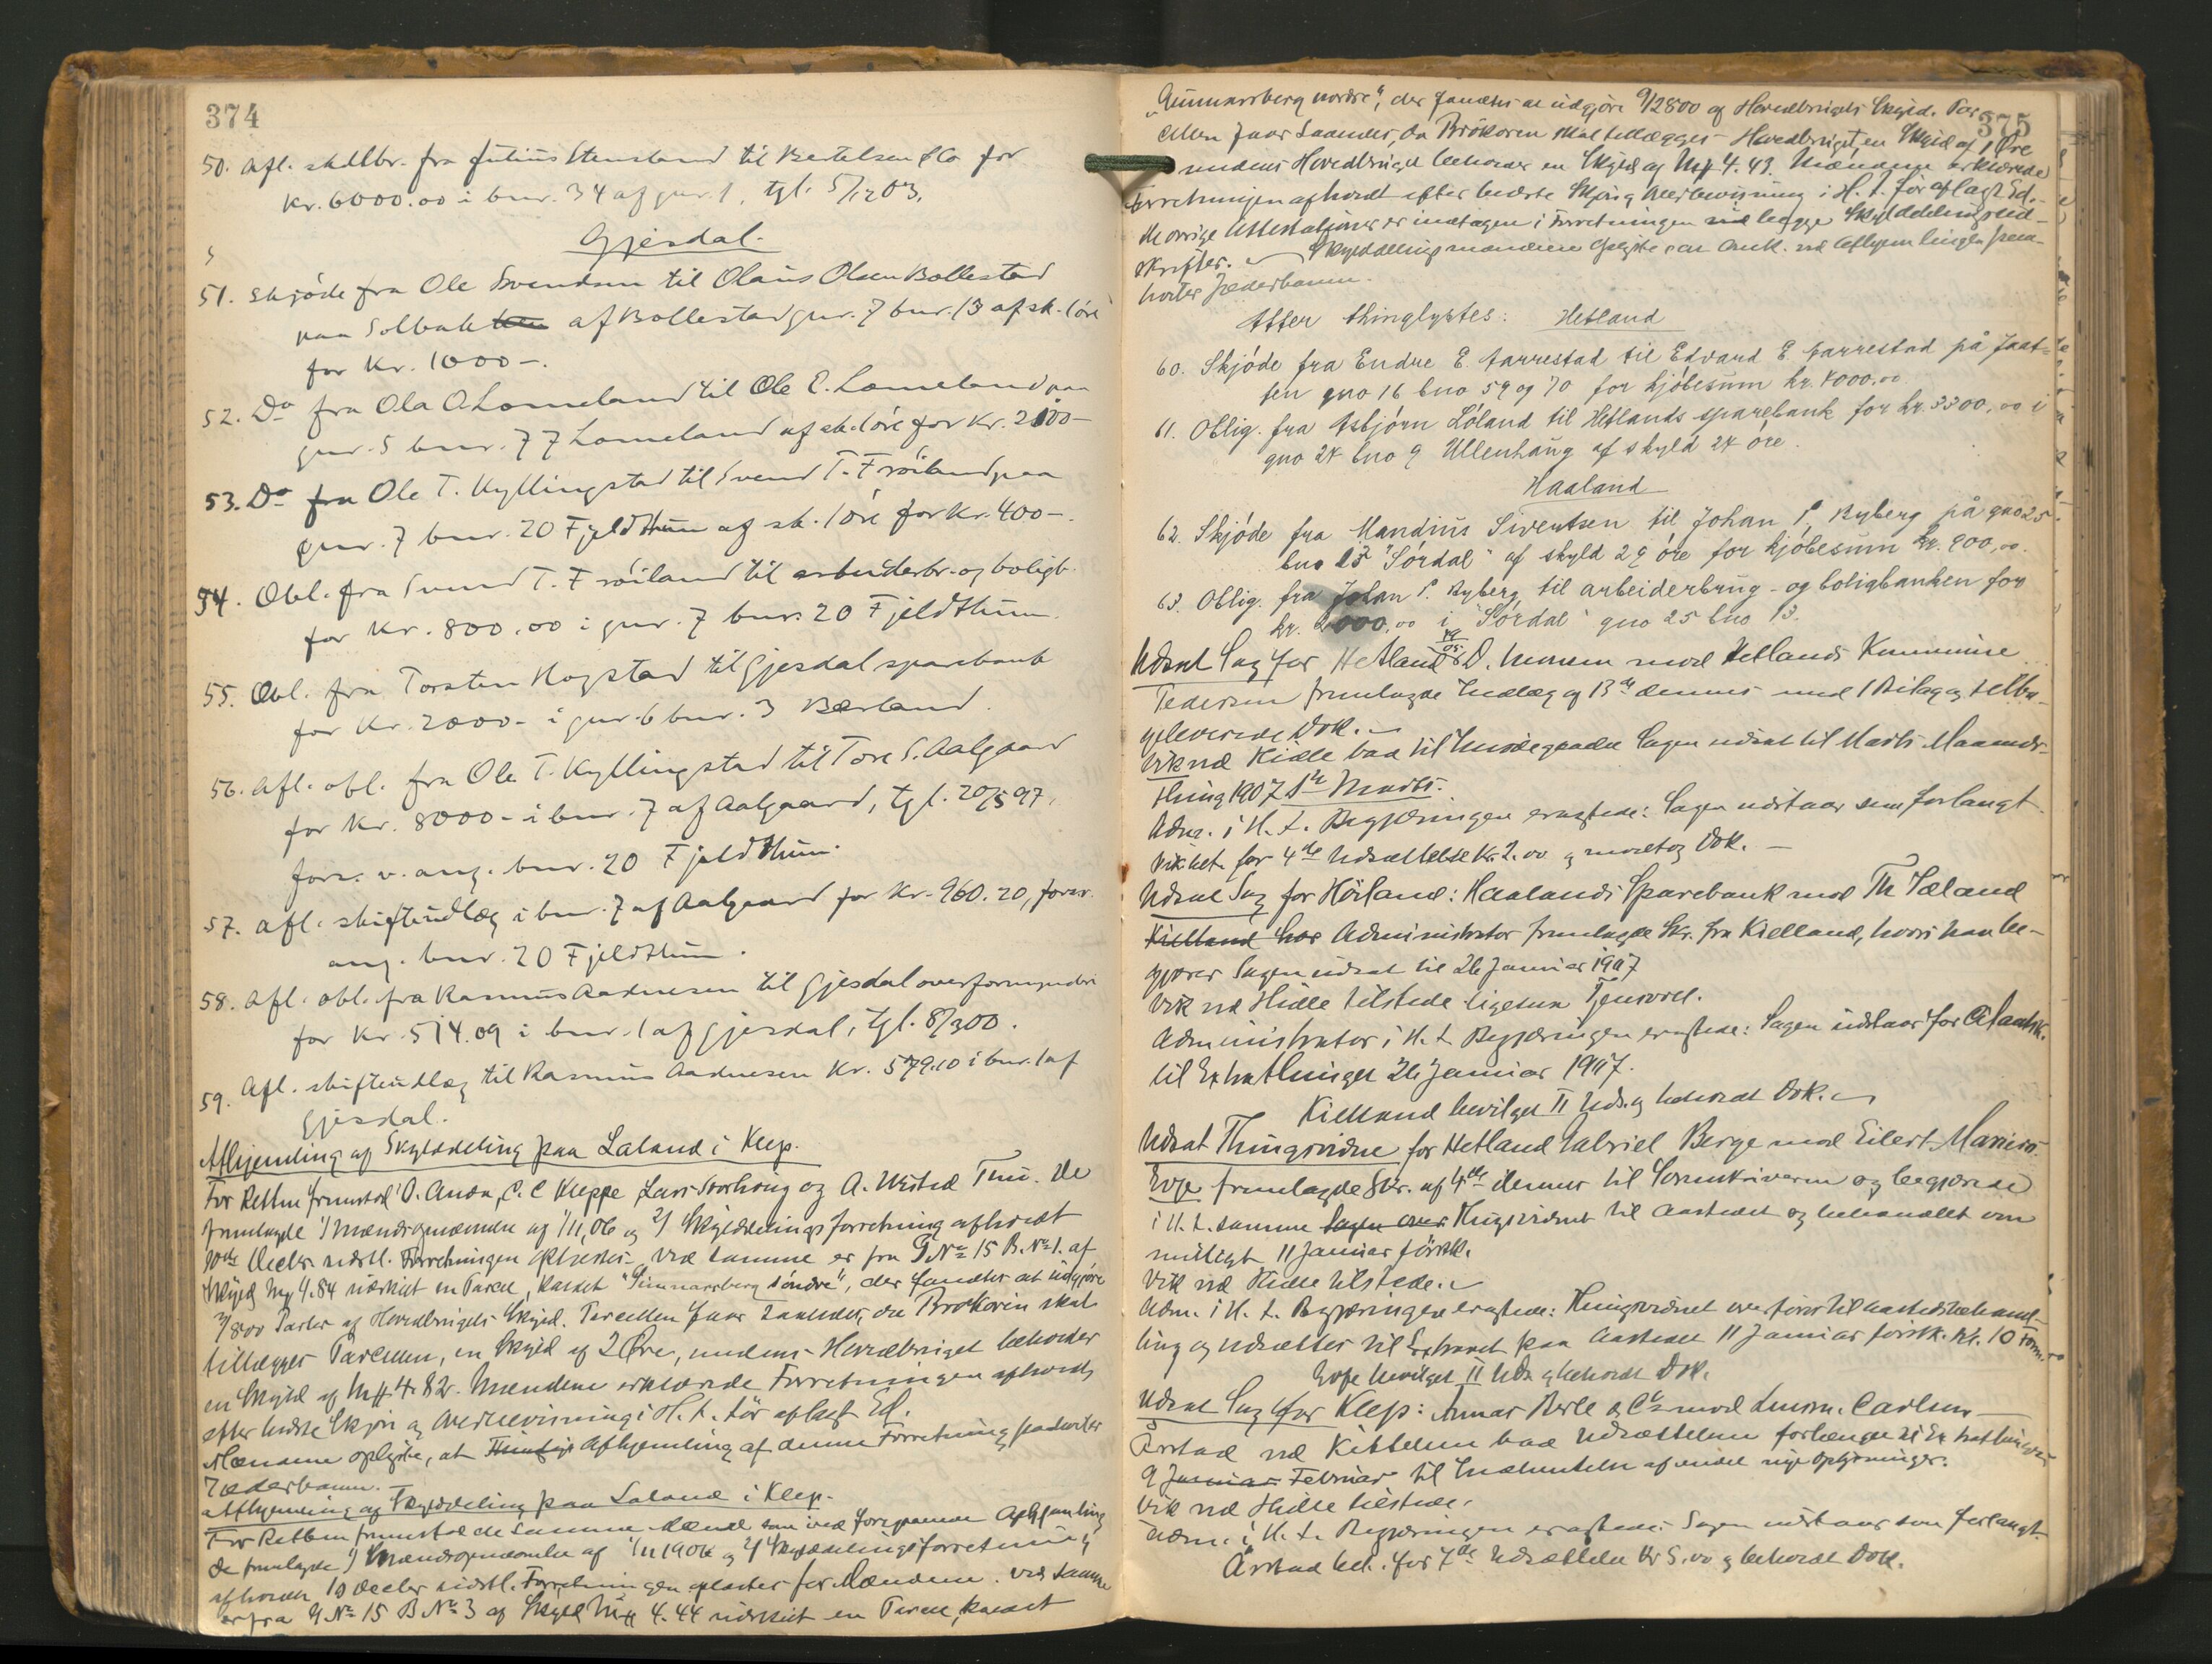 374
50. Afl. skadbr. fra Julius Stensland til Bertelsen & Co for
Kr. 6000.00 i bnr. 34 af gnr. 1, tgl. 5/12 03.
Gjesdal.
51. Skjöde fra Ole Svendsen til Olaus Olsen Bollestad
paa Solbak af Bollestad gnr. 7 bnr. 13 af sk. 1 öre
for Kr. 1000-.
52. Do fra Ola O. Lomeland til Ole E. Lomeland paa
gnr. 5 bnr. 7 Lomeland af sk. 1 öre for Kr. 2100-
53. Do fra Ole T. Kyllingstad til Svend T. Fröiland paa
gnr. 7 bnr. 20 Fjeldthun af sk. 1 öre for Kr. 400-.
54. Obl. fra Svend T. Fröiland til arbeiderbr. og boligb.
for Kr. 800.00 i gnr. 7 bnr. 20 Fjeldthun.
55. Obl. fra Torsten Hogstad til Gjesdal sparebank
for Kr. 2000- i gnr. 6 bnr. 3 Bærland.
56. Afl. obl. fra Ole T. Kyllingstad til Tore S. Aalgaard
for Kr. 8000- i bnr. 7 af Aalgaard, tgl. 20/5 97,
forsv. v. ang. bnr. 20 Fjeldthun.
57. Afl. skifteudlæg i bnr. 7 af Aalgaard for Kr. 960.20, forsv.
ang. bnr. 20 Fjeldthun.
58. Afl. obl. fra Rasmus Aadnesen til Gjesdal overformynderi
for Kr. 514.09 i bnr. 1 af Gjesdal, tgl. 8/3 00.
59. Afl. skifteudlæg til Rasmus Aadnesen Kr. 579.10 i bnr. 1 af
Gjesdal.
Afhjemling af Skylddeling paa Laland i Klep.
For Retten fremstod O. Anda, C. C. Kleppe Lars Storhoug og A. Ursted Tuu. De
fremlagde 1/ Mændsopnævnelse af 1/11,06 og 2/ Skylddelingsforretning afholdt
10de Decbr. sidstl. Forretningen oplæstes. Ved samme er fra G No 15 B. No 1. af
Skyld Mk 4.84 udskilt en Parcel, kaldet "Gunnarsberg söndre", der fandtes at udgjöre
3/800 Parter af Hovedbrugets Skyld. Parcellen faar saaledes, da Brökoren skal
tillægges Parcellen, en Skyld af 2 Öre, medens Hovedbruget beholder
en Skyld af Mk 4.82. Mændene erklærede Forretningen afholdt
efter bedste Skjön og Overbevisning i H. t. för aflagt Ed.
Mændene oplyste, at Afhjemling af denne Forretning paahviler
Jæderbanen.
Afhjemling af Skylddeling paa Laland i Klep.
For Retten fremstod de samme Mænd som ved foregaaende Afhjemling
De fremlagde 1) Mændsopnævnelse af 1/11 1906 og 2) Skylddelingsforretning
afholdt 10 Decbr sidstl. Forretningen oplæstes for Mændene. Ved samme
er fra G No 15 B No 3 af Skyld Mk 4.44 udskilt en Parcel, kaldet
375
"Gunnarsberg nordre", der fandtes at udgjöre 9/2800 af Hovedbrugets Skyld. Par-
cellen faar saaledes, da Brökoren skal tillægges Hovedbruget, en Skyld af 1 Öre
medens Hovedbruget beholder en Skyld af Mk 4.43. Mændene erklærede
Forretningen afholdt efter bedste Skjön og Overbevisning i H. t. för aflagt Ed.
De övrige Attestationer er indtagen i Forretningen ved begge Skylddelingsud-
skrifter. Skylddelingsmændene oplyste at Omk. ved Afhjemlingen paa-
hviler Jæderbanen.
Atter thinglystes: Hetland
60. Skjöde fra Endre E. Aarrestad til Edvard E. Aarrestad på Jaat-
ten gno 16 bno 59 og 70 for kjöbesum kr. 4000.00
61. Oblig. fra Asbjörn Löland til Hetlands sparebank for kr. 3300,00 i
gno 24 bno 9 Ullenhaug af skyld 24 öre.
Haaland
62. Skjöde fra Mandius Sivertsen til Johan P. Ryberg på gno 25
bno 13 "Sördal" af skyld 29 öre for kjöbesum kr. 900,00.
63. Oblig. fra Johan P. Ryberg til arbeiderbrug- og boligbanken for
kr. 2000,00 i "Sördal" gno 25 bno 13.
Udsat Sag for Hetland: O. Monsen mod Hetlands Kommune
Pedersen fremlagde Indlæg af 13de dennes med 1 Bilag og tilba-
geleverede Dok.
Vik ved Hidle bad til Imödegaaelse Sagen udsat til Marts Maaneds-
thing 1907 1ste Marts.
Adm. i H. t. Begjæringen eragtede: Sagen udstaar som forlangt.
Vik bet. for 4de Udsættelse Kr. 2.00 og modtog Dok.
Udsat Sag for Höiland: Haalands Sparebank mod Th. Sæland
Administrator fremlagde Skr. fra Kielland, hvori han be-
gjærer Sagen udsat til 26 Januar 1907
Vik ved Hidle tilstede ligesaa Tjensvold.
Administrator i H. t. Begjæringen eragtede: Sagen udstaar for
til Extrathinget 26 Januar 1907.
Kielland bevilget II Uds. og beholdt Dok.
Udsat Thingsvidne for Hetland Gabriel Berge mod Eilert
Evje fremlagde Skr. af 4de dennes til Sorenskriveren og begjærede
i H. t. samme Thingsvidnet til Aastedet og behandlet om
muligt 11 Januar förstk.
Vik ved Hidle tilstede.
Adm. i H. t. Begjæringen eragtede: Thingsvidnet overföres til Aastedsbehand-
ling og udsættes til Extraret paa Aastedet 11 Januar förstk. Kl. 10 Form.
Evje bevilget II Uds og beholdt Dok.
Udsat Sag for Klep: Annar Berle & Co mod Carlsen
Årstad ved Kittelsen bad Udsættelsen forlænget til Extrathinget
9 Februar til Indhentelse af endel nye Oplysninger.
Vik ved Hidle tilstede.
Adm. i H. t. Begjæringen eragtede: Sagen udstaar som forlangt.
Årstad bet. for 7de Udsættelse Kr 5.00 og beholdt Dok.